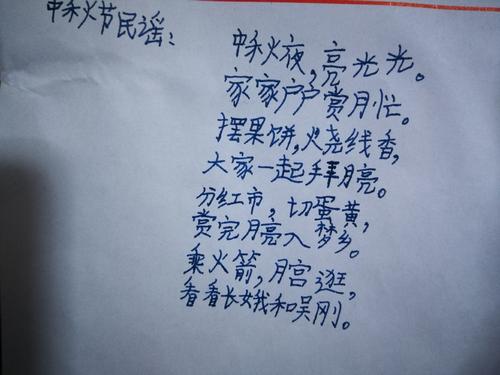 中秋节民谣：
中秋夜，亮光光。
家家户户赏月忙。
摆果饼，火烧线香，
大家一起拜月亮。
分红市，切蛋黄，
赏完月亮入梦乡。
乘火箭，月宫逛，
看看长娥和吴刚。